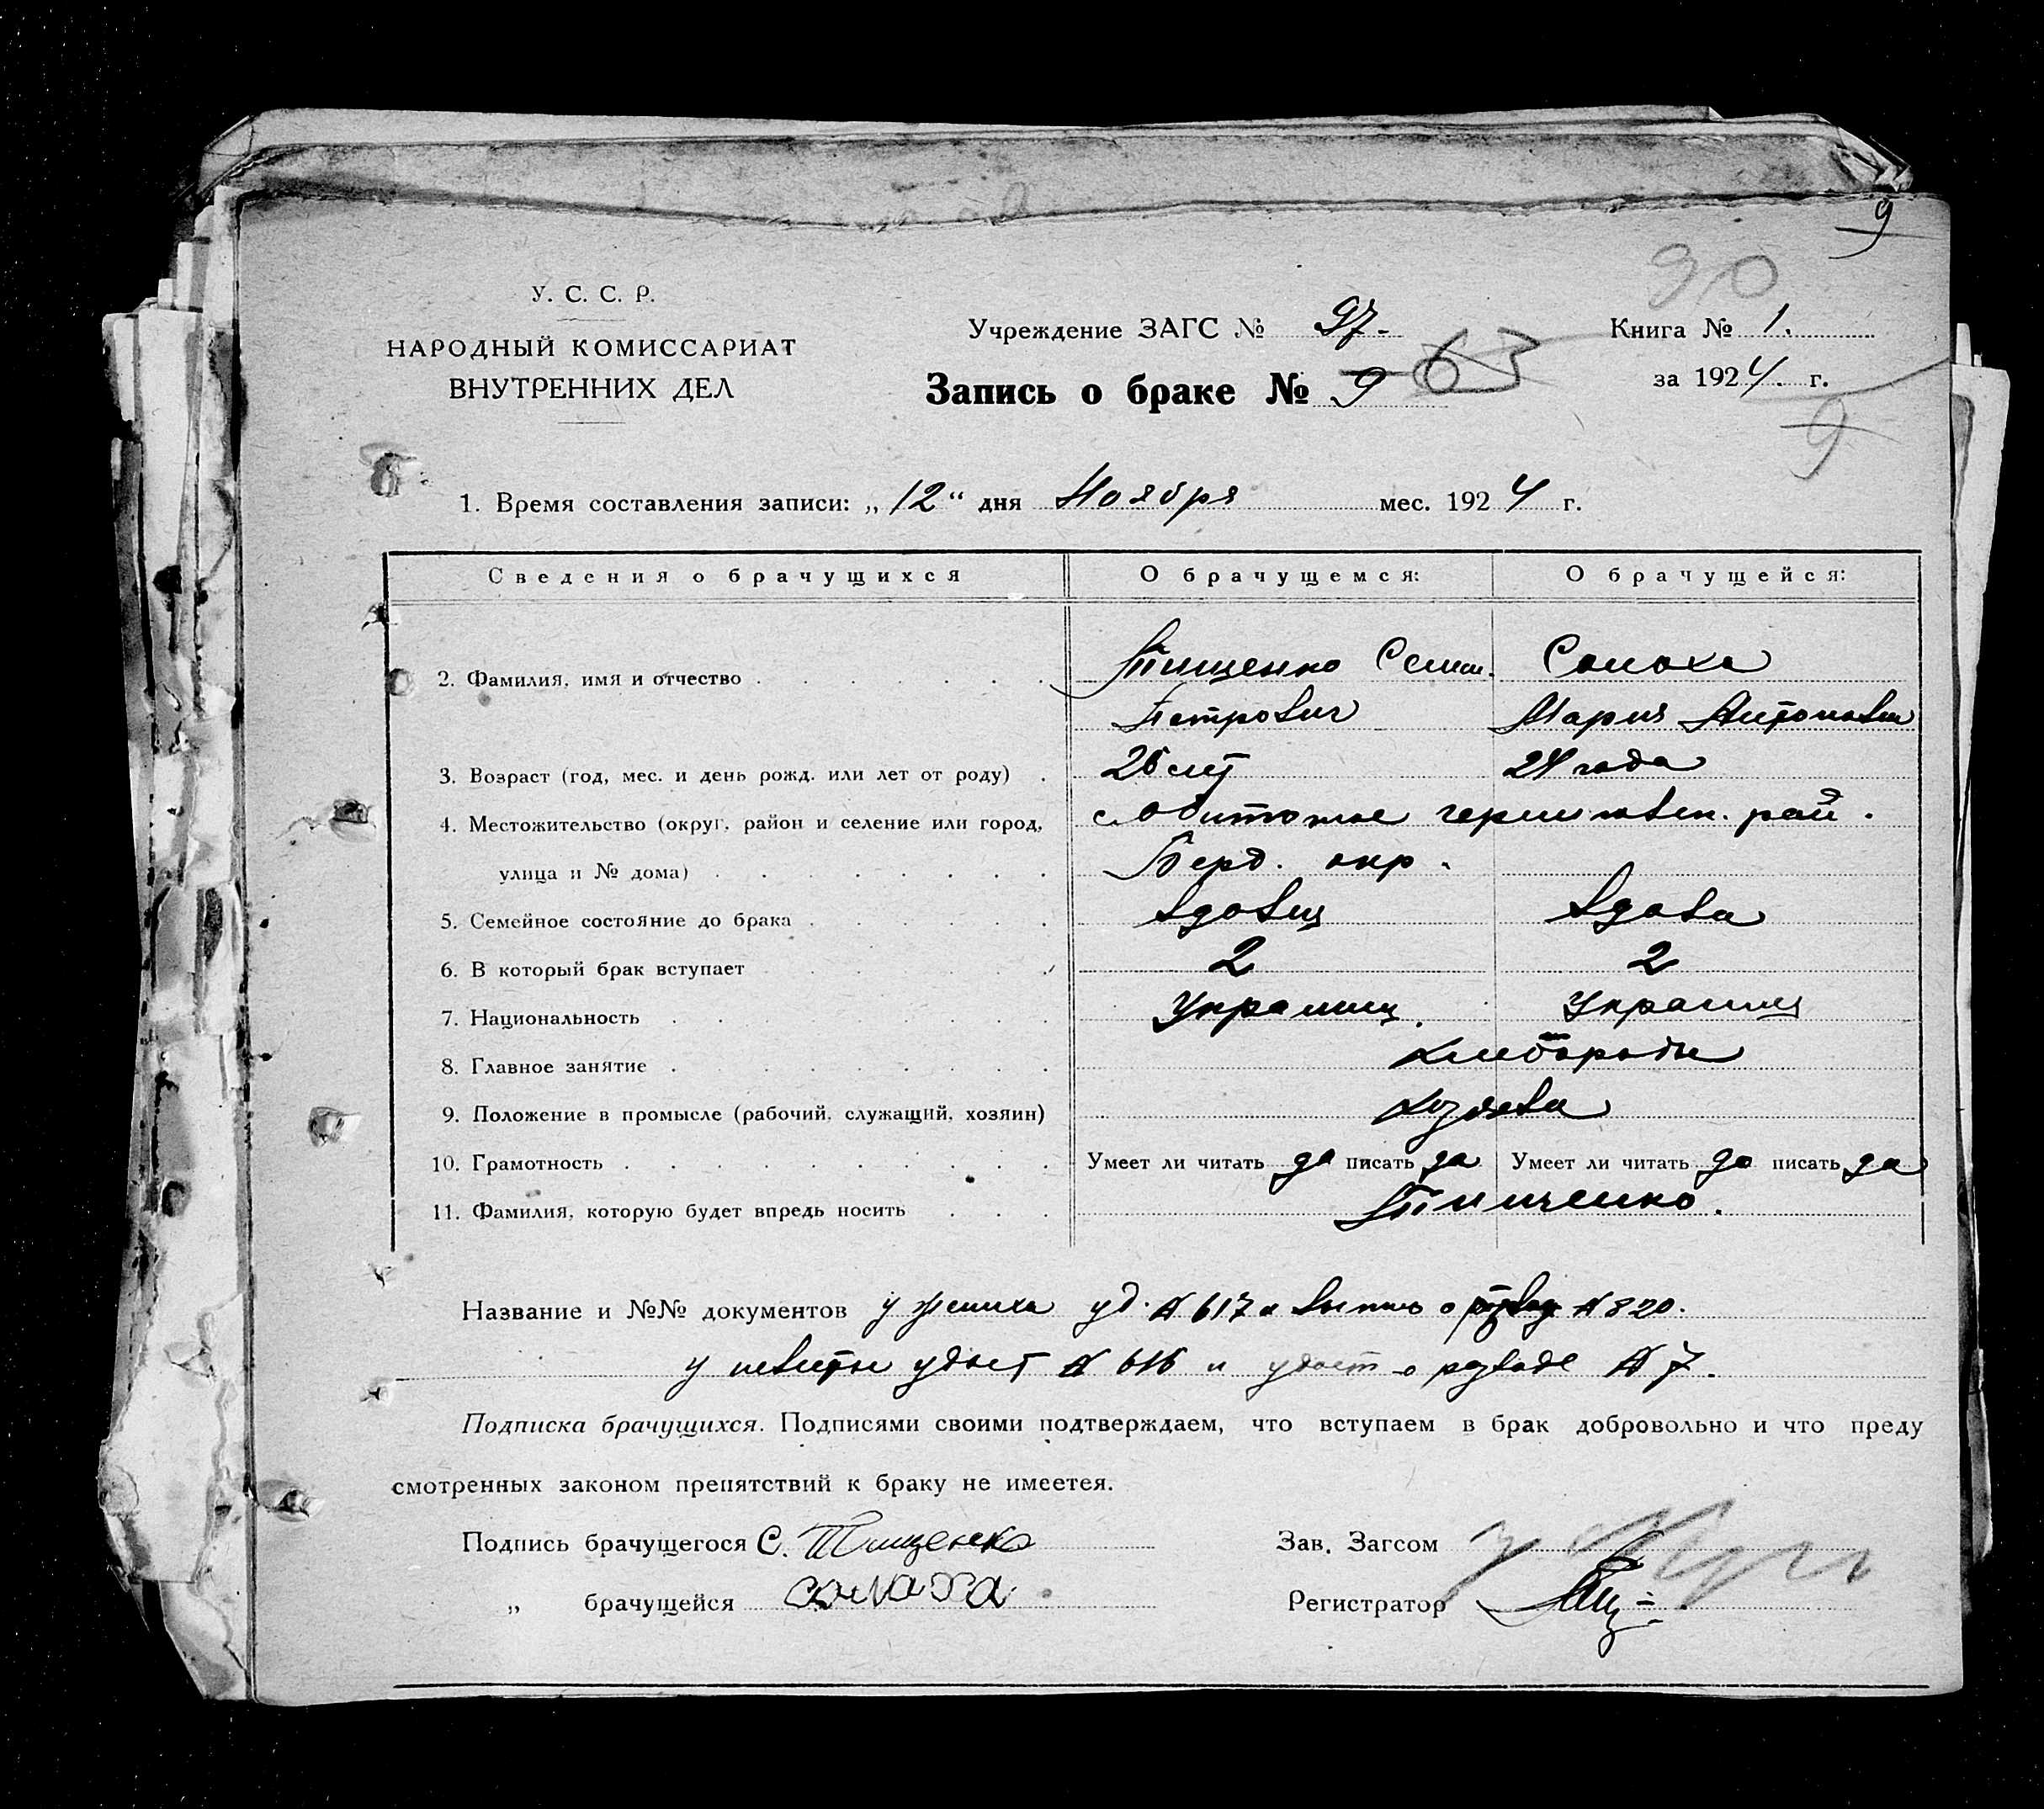 9
30
У. С. С. Р.
НАРОДНЫЙ КОМИССАРИАТ
ВНУТРЕННИХ ДЕЛ
Учреждение ЗАГС № 97.
Книга № 1.
Запись о браке № 9 63
за 1924. г.
9
1. Время составления записи: „12“ дня Ноября мес. 1924 г.
Сведения о брачущихся О брачущемся: О брачущейся:
2. Фамилия, имя и отчество Тищенко Семен. Солоха
Петрович Мария Антоновн
3. Возраст (год, мес. и день рожд. или лет от роду) 26 лет 24 года
4. Местожительство (округ, район и селение или город, с Обиточное рай.
улица и № дома) Берд. окр.
5. Семейное состояние до брака вдовец вдова
6. В который брак вступает 2 2
7. Национальность Украинц. Украинц
8. Главное занятие хлебороды
9. Положение в промысле (рабочий, служащий, хозяин) хозяева
10. Грамотность Умеет ли читать да писать да Умеет ли читать да писать да
11. Фамилия, которую будет впредь носить Тищенко.
Название и №№ документов у жениха уд. № 617 и выпись о № 820.
у невесты удост № 616 и удост о разводе № 7.
Подписка брачущихся. Подписями своими подтверждаем, что вступаем в брак добровольно и что преду
смотренных законом препятствий к браку не имеетея.
Подпись брачущегося С. Тищенко Зав. Загсом
„ брачущейся солоха Регистратор